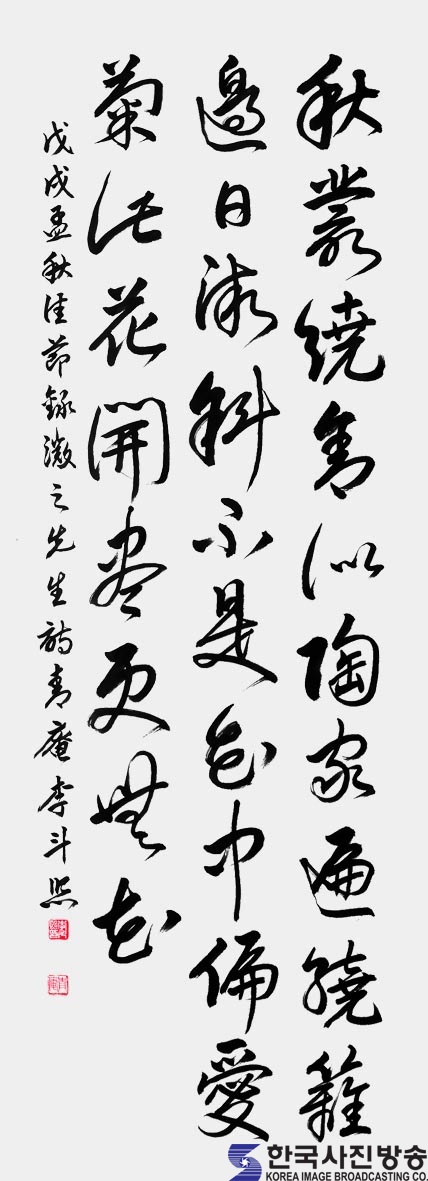 秋叢繞舍似陶家遍繞籬
邊日漸斜不是花中偏愛
菊此花開盡更無花
戊戌孟秋佳節錄微之先生詩青庵李斗熙
한국사진방송
KOREA IMAGE BROADCASTING CO.